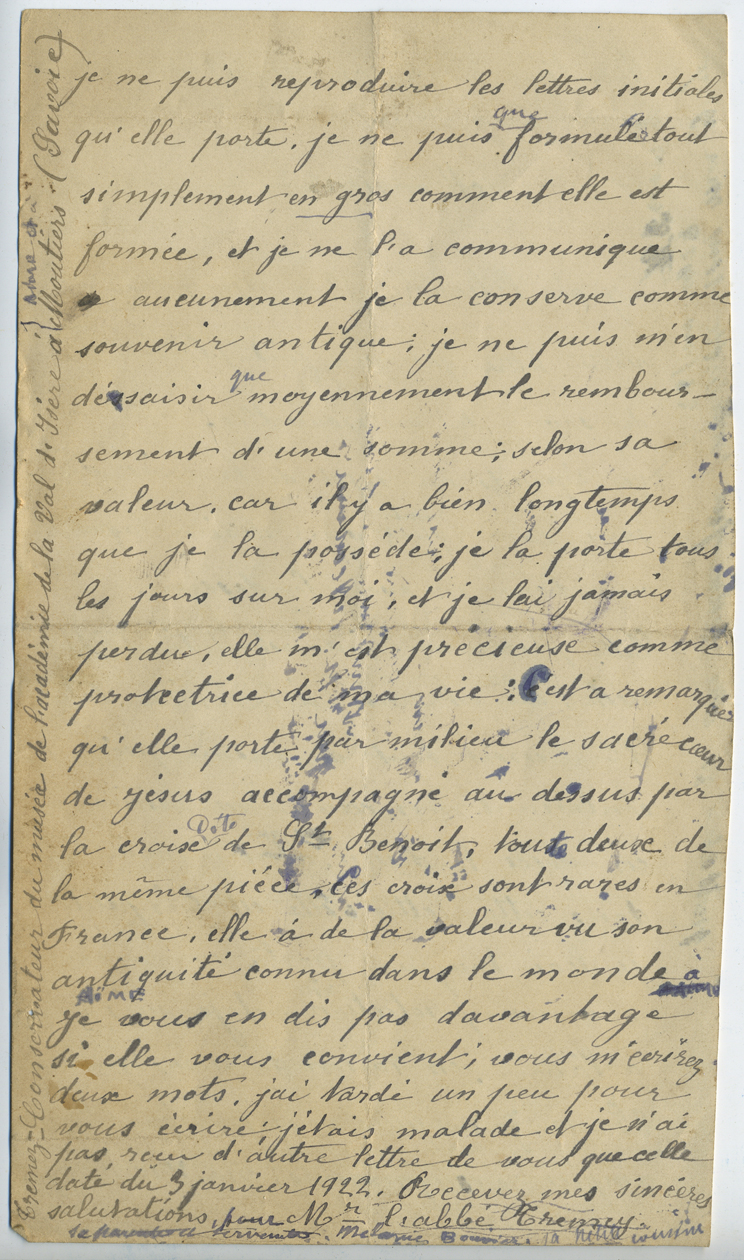 je ne puis reproduire les lettres initiales
qu'elle porte, je ne puis que formulér tout
simplement en gros comment elle est
formée, et je ne l'a communique
aucunement je la conserve comme
souvenir antique; je ne puis m'en
déssaisir que moyennement le rembour-
sement d'une somme; selon sa
valeur, car il y a bien longtemps
que je la posséde; je la porte tous
les jours sur moi, et je lai jamais
perdue, elle m'est précieuse comme
protectrice de ma vie: C'est a remarquér
qu'elle porte par milieu le sacré cœur
de jésus accompagné au dessus par
la croix Dite de St Benoit, tout deux de
la même piéce, Ces croix sont rares en
France, elle á de la valeur vu son
antiquité connu dans le monde à
AIME
Je vous en dis pas davantage
si elle vous convient; vous m'ecrirez
deux mots, jai tardé un peu pour
vous écrire: j'étais malade et je n'ai
pas reçu d'autre lettre de vous que celle
daté du 3 janvier 1922. Recever mes sincéres
salutations, pour Mr l'abbé Tremey
Bouvier. sa petite cousine
Tremey-Conservateur du musée de l'académie de la Val d'Isère á Moutiers. (Savoie)